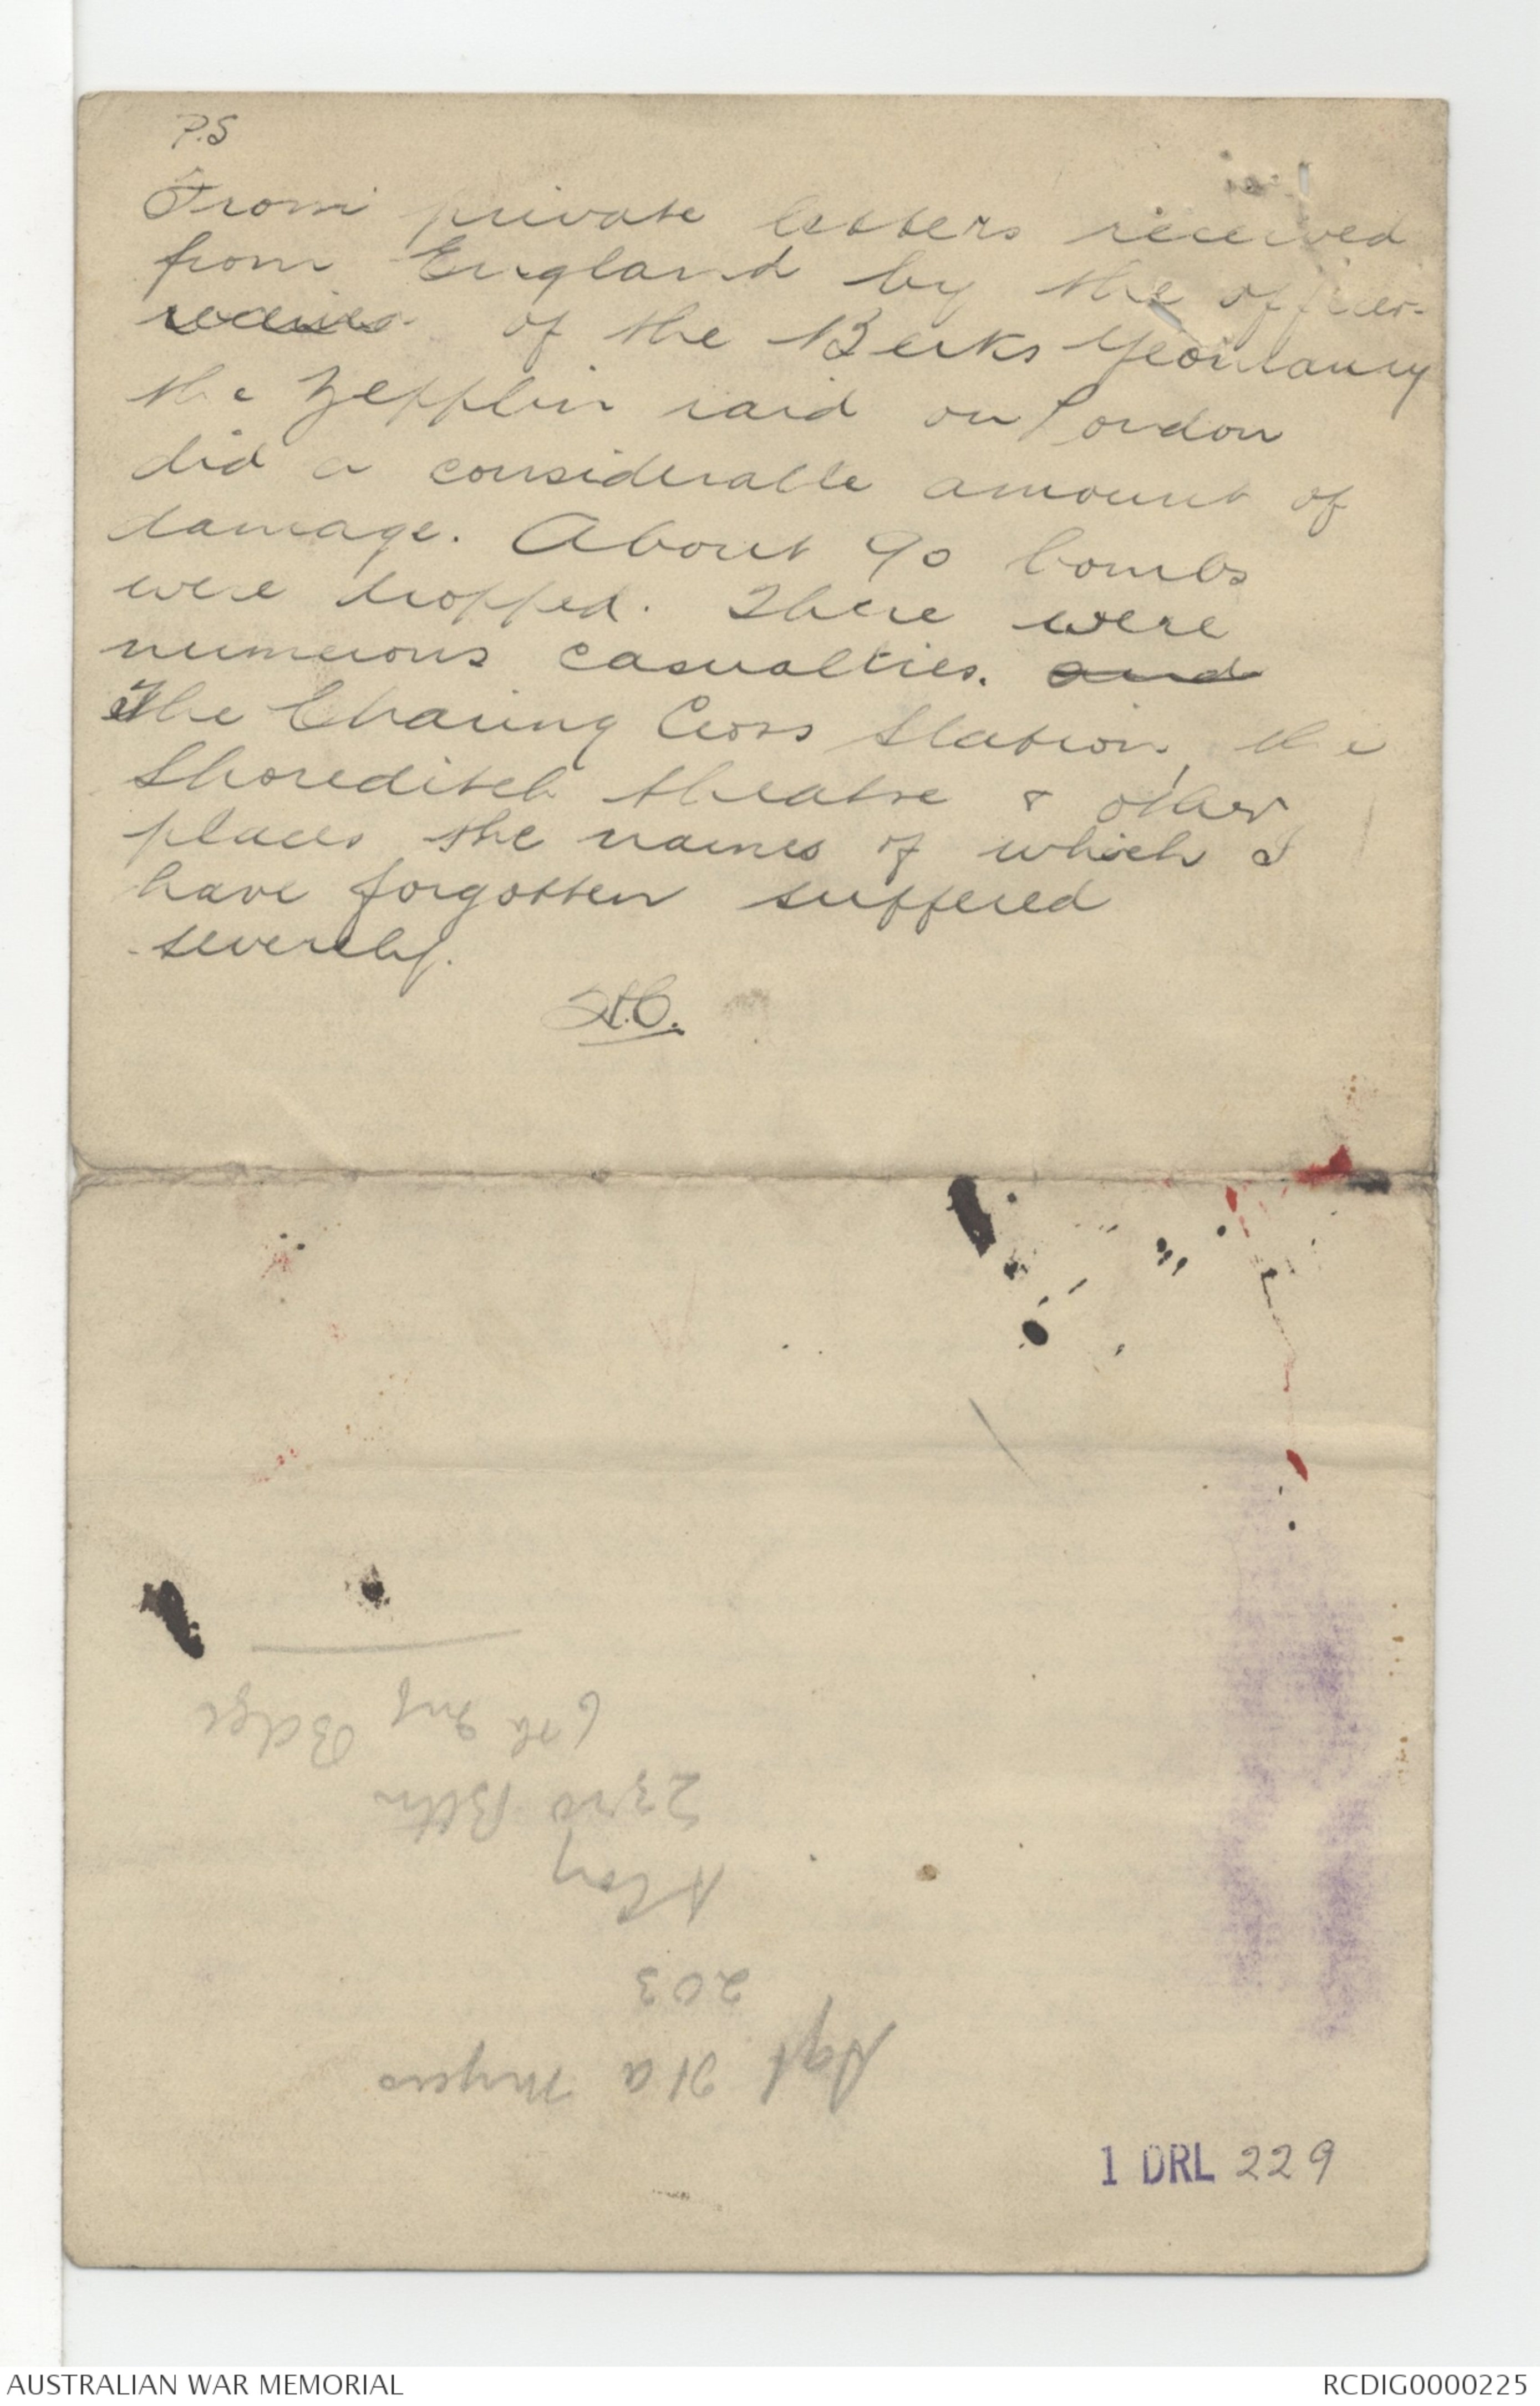 P.S
From private letters received
from England by the officer
of the Berks Yeomanry
the Zepplin raid on London
did a considerable amount of
damage. About 90 bombs
were dropped. There were
numerous casualties. and
The Charing Cross Station, the
Shoreditch theatre & other
places the names of which I
have forgotten suffered
severely.
6th Inf Bdge
23rd Bttn
A Coy
203
Sgt H a Myers
1 DRL 229
AUSTRALIAN WAR MEMORIAL
RCDIG0000225